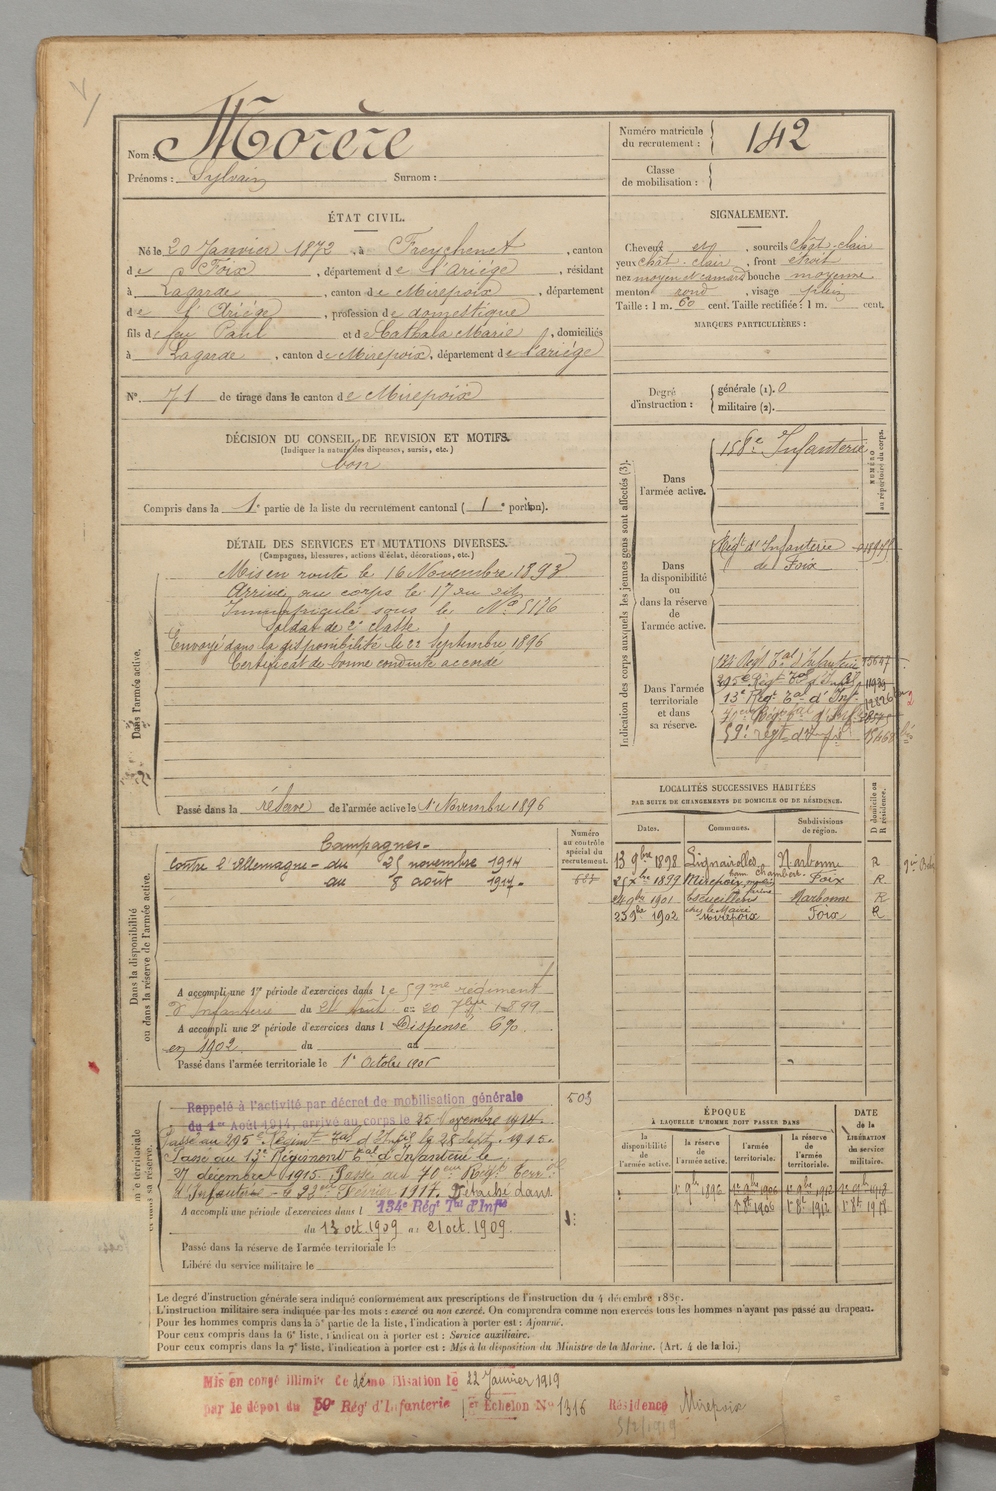 Nom : Morère
Prénoms : Sylvain Surnom :
Numéro matricule du recrutement : 142
Classe de mobilisation :
ÉTAT CIVIL.
Né le 20 Janvier 1872, à Freychenet, canton
de Foix, département de l'Ariége, résidant
à Lagarde, canton de Mirepoix, département
de l'Ariége, profession de domestique
fils de feu Paul et de Cathala Marie, domiciliés
à Lagarde, canton de Mirepoix, département de l'ariége
N° 71 de tirage dans le canton de Mirepoix
DÉCISION DU CONSEIL DE REVISION ET MOTIFS.
(Indiquer la nature des dispenses, sursis, etc.)
bon
Compris dans la 1e partie de la liste du recrutement cantonal (1e portion).
SIGNALEMENT.
Cheveux et, sourcils chât. clair
yeux chât. clair, front étroit
nez moyen et camard bouche moyenne
menton rond, visage plein
Taille : 1 m. 60 cent. Taille rectifiée : 1 m. cent.
MARQUES PARTICULIÈRES :
Degré d'instruction : générale (1). 0
militaire (2).
DÉTAIL DES SERVICES ET MUTATIONS DIVERSES.
(Campagnes, blessures, actions d'éclat, décorations, etc.)
Dans l'armée active.
Mis en route le 16 Novembre 1893
Arrivé au corps le 17 au dit
Immatriculé sous le No 5176
Soldat de 2e classe
Envoyé dans la disponibilité le 22 Septembre 1896
Certificat de bonne conduite accordé
Passé dans la réserve de l'armée active le 1 Novembre 1896
Indication des corps auxquels les jeunes gens sont affectés (3).
NUMÉRO au répertoire du corps.
Dans l'armée active.
158e Infanterie
Dans la disponibilité ou dans la réserve de l'armée active.
Régt d'Infanterie
de Foix
Dans l'armée territoriale et dans sa réserve.
134 Régt Tal d'Infanterie
295e Régt Tal d'Inf
13e Régt Tal d'Inf.
70eme Régt Tal d'Inf
59e régt d'Inf
Dans la disponibilité ou dans la réserve de l'armée active.
Numéro au contrôle spécial du recrutement.
Campagnes -
Contre l'Allemagne - du 25 novembre 1914
au 8 août 1917 -
A accompli une 1re période d'exercices dans le 59me régiment
d'Infanterie du 24 Août au 20 7bre 1899
A accompli une 2e période d'exercices dans l Dispensé 6%
en 1902 du au
Passé dans l'armée territoriale le 1e Octobre 1906
LOCALITÉS SUCCESSIVES HABITÉES
PAR SUITE DE CHANGEMENTS DE DOMICILE OU DE RÉSIDENCE.
D domicile ou R résidence.
Dates. Communes. Subdivisions de région.
13 9bre 1898 Lignairolles Narbonne R
25 Xbre 1899 Mirepoix Foix R
24 9bre 1901 Escueillens Narbonne R
23 9bre 1902 Mirepoix chez le Maire Foix R
503
Rappelé à l'activité par décret de mobilisation générale
du 1er Août 1914, arrivé au corps le 25 Novembre 1914.
Passé au 295e Régiment Tal d'Infie le 28 Sept. 1915.
Passé au 13e Régiment Tal d'Infanterie le
27 décembre 1915. Passé au 70eme Régt Terral
d'Infanterie - le 23 Février 1917. Détaché dans
A accompli une période d'exercices dans l 134e Régt Tal d'Infie
du 13 oct 1909 au 21 oct. 1909.
Passé dans la réserve de l'armée territoriale le
Libéré du service militaire le
ÉPOQUE
À LAQUELLE L'HOMME DOIT PASSER DANS
DATE de la LIBÉRATION du service militaire.
la disponibilité de l'armée active. la réserve de l'armée active. l'armée territoriale. la réserve de l'armée territoriale.
1e 9bre 1896 1e 9bre 1906 1e 9bre 1912 1e 9bre 1918
1e 8bre 1906 1e 8bre 1912 1e 8bre 1918
Le degré d'instruction générale sera indiqué conformément aux prescriptions de l'instruction du 4 décembre 1889.
L'instruction militaire sera indiquée par les mots : exercé ou non exercé. On comprendra comme non exercés tous les hommes n'ayant pas passé au drapeau.
Pour les hommes compris dans la 5e partie de la liste, l'indication à porter est : Ajourné.
Pour ceux compris dans la 6e liste, l'indication à porter est : Service auxiliaire.
Pour ceux compris dans la 7e liste, l'indication à porter est : Mis à la disposition du Ministre de la Marine. (Art. 4 de la loi.)
Mis en congé illimité de démobilisation le 22 Janvier 1919
par le dépôt du 59e Régt d'Infanterie 1er Echelon No 1316 Résidence Mirepoix
5/2/1919